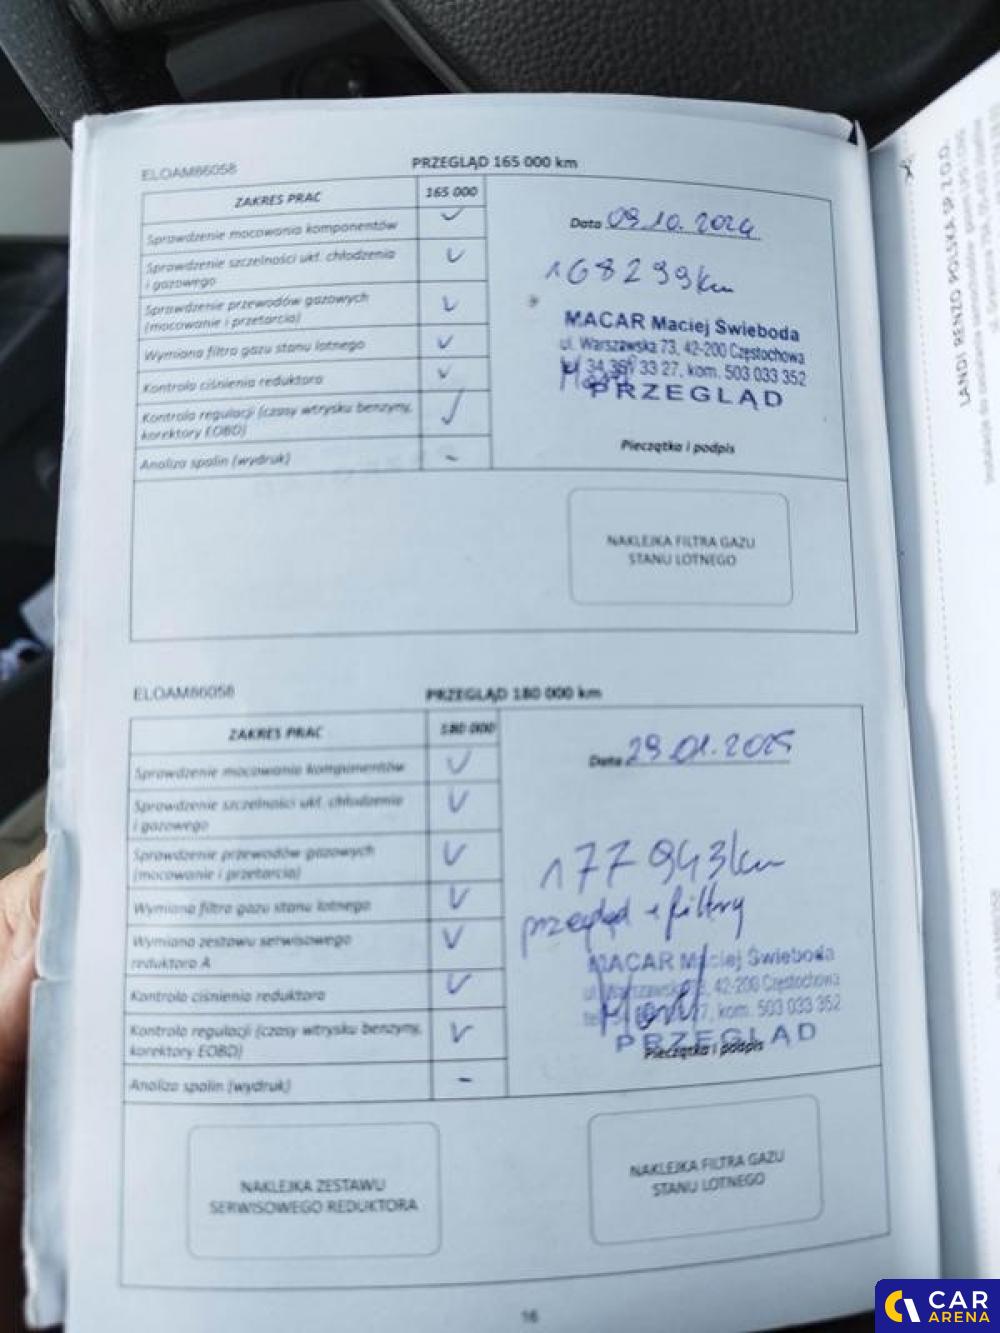 ELOAM86058
PRZEGLĄD 165 000 km
ZAKRES PRAC
165 000
Sprawdzenie mocowania komponentów
Sprawdzenie szczelności ukł. chłodzenia
i gazowego
Sprawdzenie przewodów gazowych
(mocowanie i przetarcia)
Wymiana filtra gazu stanu lotnego
Kontrola ciśnienia reduktora
Kontrola regulacji (czasy wtrysku benzyny,
korektory EOBD)
Analiza spalin (wydruk)
Data 09.10.2024
168299km
MACAR Maciej Świeboda
ul. Warszawska 73, 42-200 Częstochowa
34 361 33 27, kom. 503 033 352
PRZEGLĄD
Pieczątka i podpis
NAKLEJKA FILTRA GAZU
STANU LOTNEGO
ELOAM86058
PRZEGLĄD 180 000 km
ZAKRES PRAC
180 000
Sprawdzenie mocowania komponentów
Sprawdzenie szczelności ukł. chłodzenia
i gazowego
Sprawdzenie przewodów gazowych
(mocowanie i przetarcia)
Wymiana filtra gazu stanu lotnego
Wymiana zestawu serwisowego
reduktora A
Kontrola ciśnienia reduktora
Kontrola regulacji (czasy wtrysku benzyny,
korektory EOBD)
Analiza spalin (wydruk)
Data 29.01.2025
177943km
przegląd + filtry
MACAR Maciej Świeboda
ul. Warszawska 73, 42-200 Częstochowa
kom. 503 033 352
PRZEGLĄD
Pieczątka i podpis
NAKLEJKA ZESTAWU
SERWISOWEGO REDUKTORA
NAKLEJKA FILTRA GAZU
STANU LOTNEGO
16
LANDI RENZO POLSKA SP. Z O.O.
CAR
ARENA